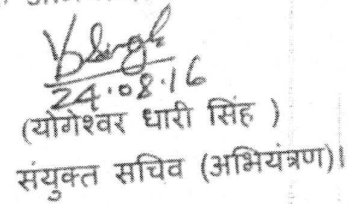 24.08.16
(योगेश्वर धारी सिंह )
संयुक्त सचिव (अभियंत्रण)।